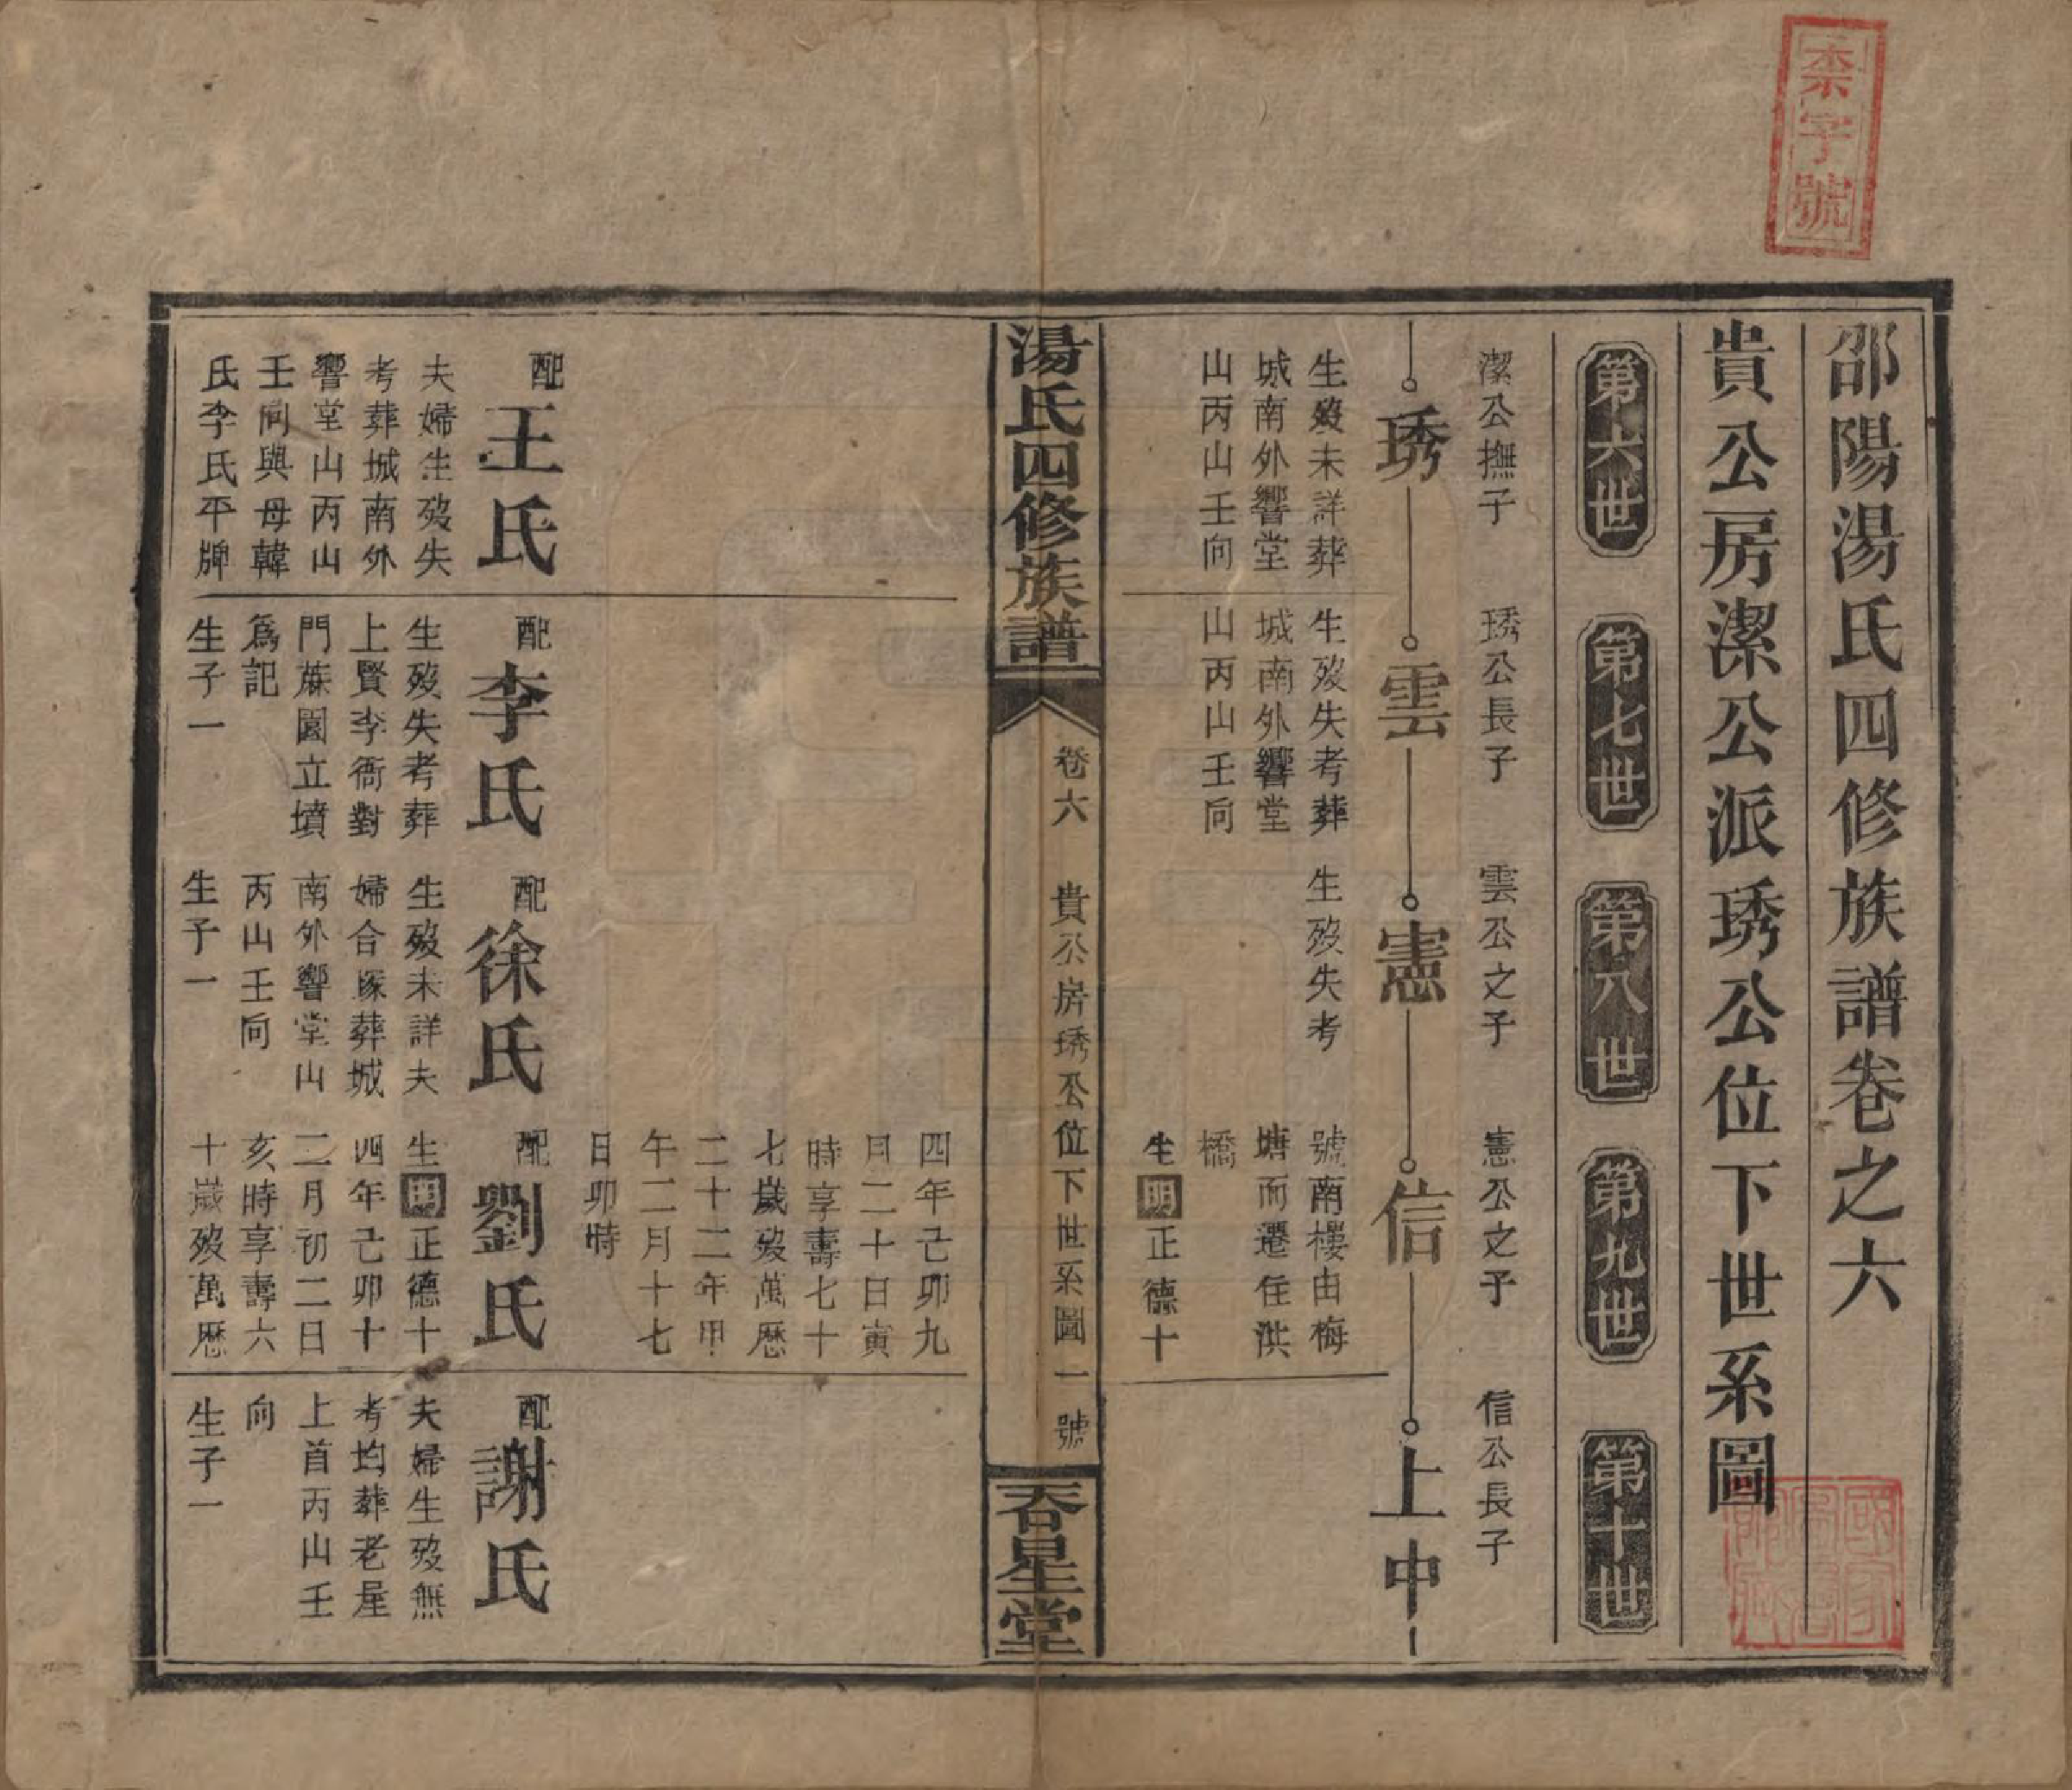 柰字號
邵陽湯氏四修族譜卷之六
貴公房潔公派琇公位下世系圖
第六世
第七世
第八世
第九世
第十世
潔公撫子
琇公長子
雲公之子
憲公之子
信公長子
琇
雲
憲
信
上中
生歿未詳葬
城南外響堂
山丙山壬向
生歿失考葬
城南外響堂
山丙山壬向
生歿失考
號南樓由梅
塘而遷住洪
橋
生明正德十
湯氏四修族譜
卷六
貴公房琇公位下世系圖
一號
吞星堂
四年己卯九
月二十日寅
時享壽七十
七歲歿萬厯
二十二年甲
午二月十七
日卯時
配
王氏
夫婦生歿失
考葬城南外
響堂山丙山
壬向與母韓
氏李氏平牌
配
李氏
生歿失考葬
上賢李衙對
門蔴園立墳
為記
生子一
配
徐氏
生歿未詳夫
婦合塚葬城
南外響堂山
丙山壬向
生子一
配
劉氏
生明正德十
四年己卯十
二月初二日
亥時享壽六
十歲歿萬厯
配
謝氏
夫婦生歿無
考均葬老屋
上首丙山壬
向
生子一